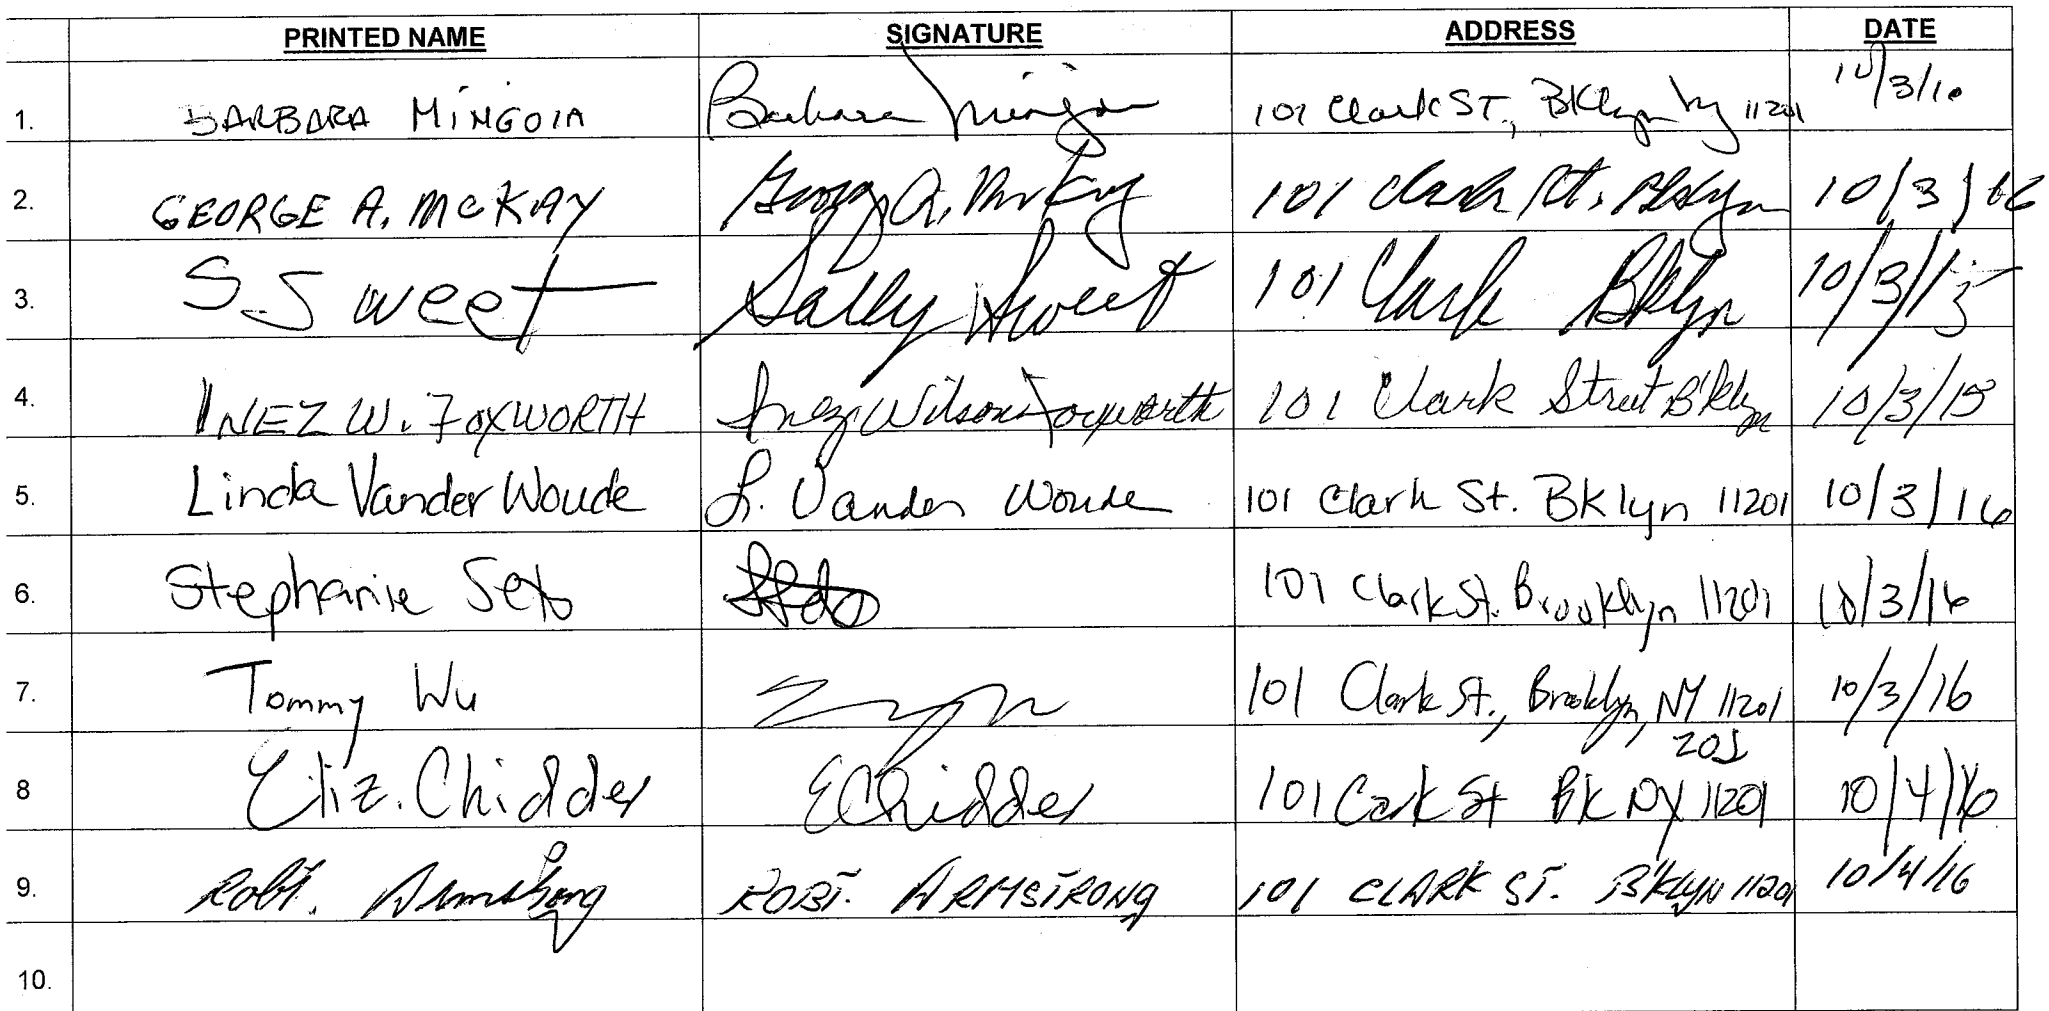 PRINTED NAME SIGNATURE ADDRESS DATE
1. BARBARA MINGOIA Barbara Mingoia 101 Clark ST., BKlyn Ny 11201 10/3/16
2. GEORGE A. MCKAY George A. McKay 101 Clark St. Bklyn 10/3/16
3. S. Sweet Sally Sweet 101 Clark Bklyn 10/3/15
4. INEZ W. FOXWORTH Inez Wilson Foxworth 101 Clark Street B'klyn 10/3/15
5. Linda Vander Woude L. Vander Woude 101 Clark St. BKlyn 11201 10/3/16
6. Stephanie Seto SSeto 101 Clark St. Brooklyn 11201 10/3/16
7. Tommy Wu 101 Clark St., Brooklyn, NY 11201 10/3/16
20J
8 Eliz. Chidder EChidder 101 Cark St BK NY 11201 10/4/16
9. Robt. Armstrong ROBT. ARMSTRONG 101 CLARK ST. B'KLYN 11201 10/4/16
10.